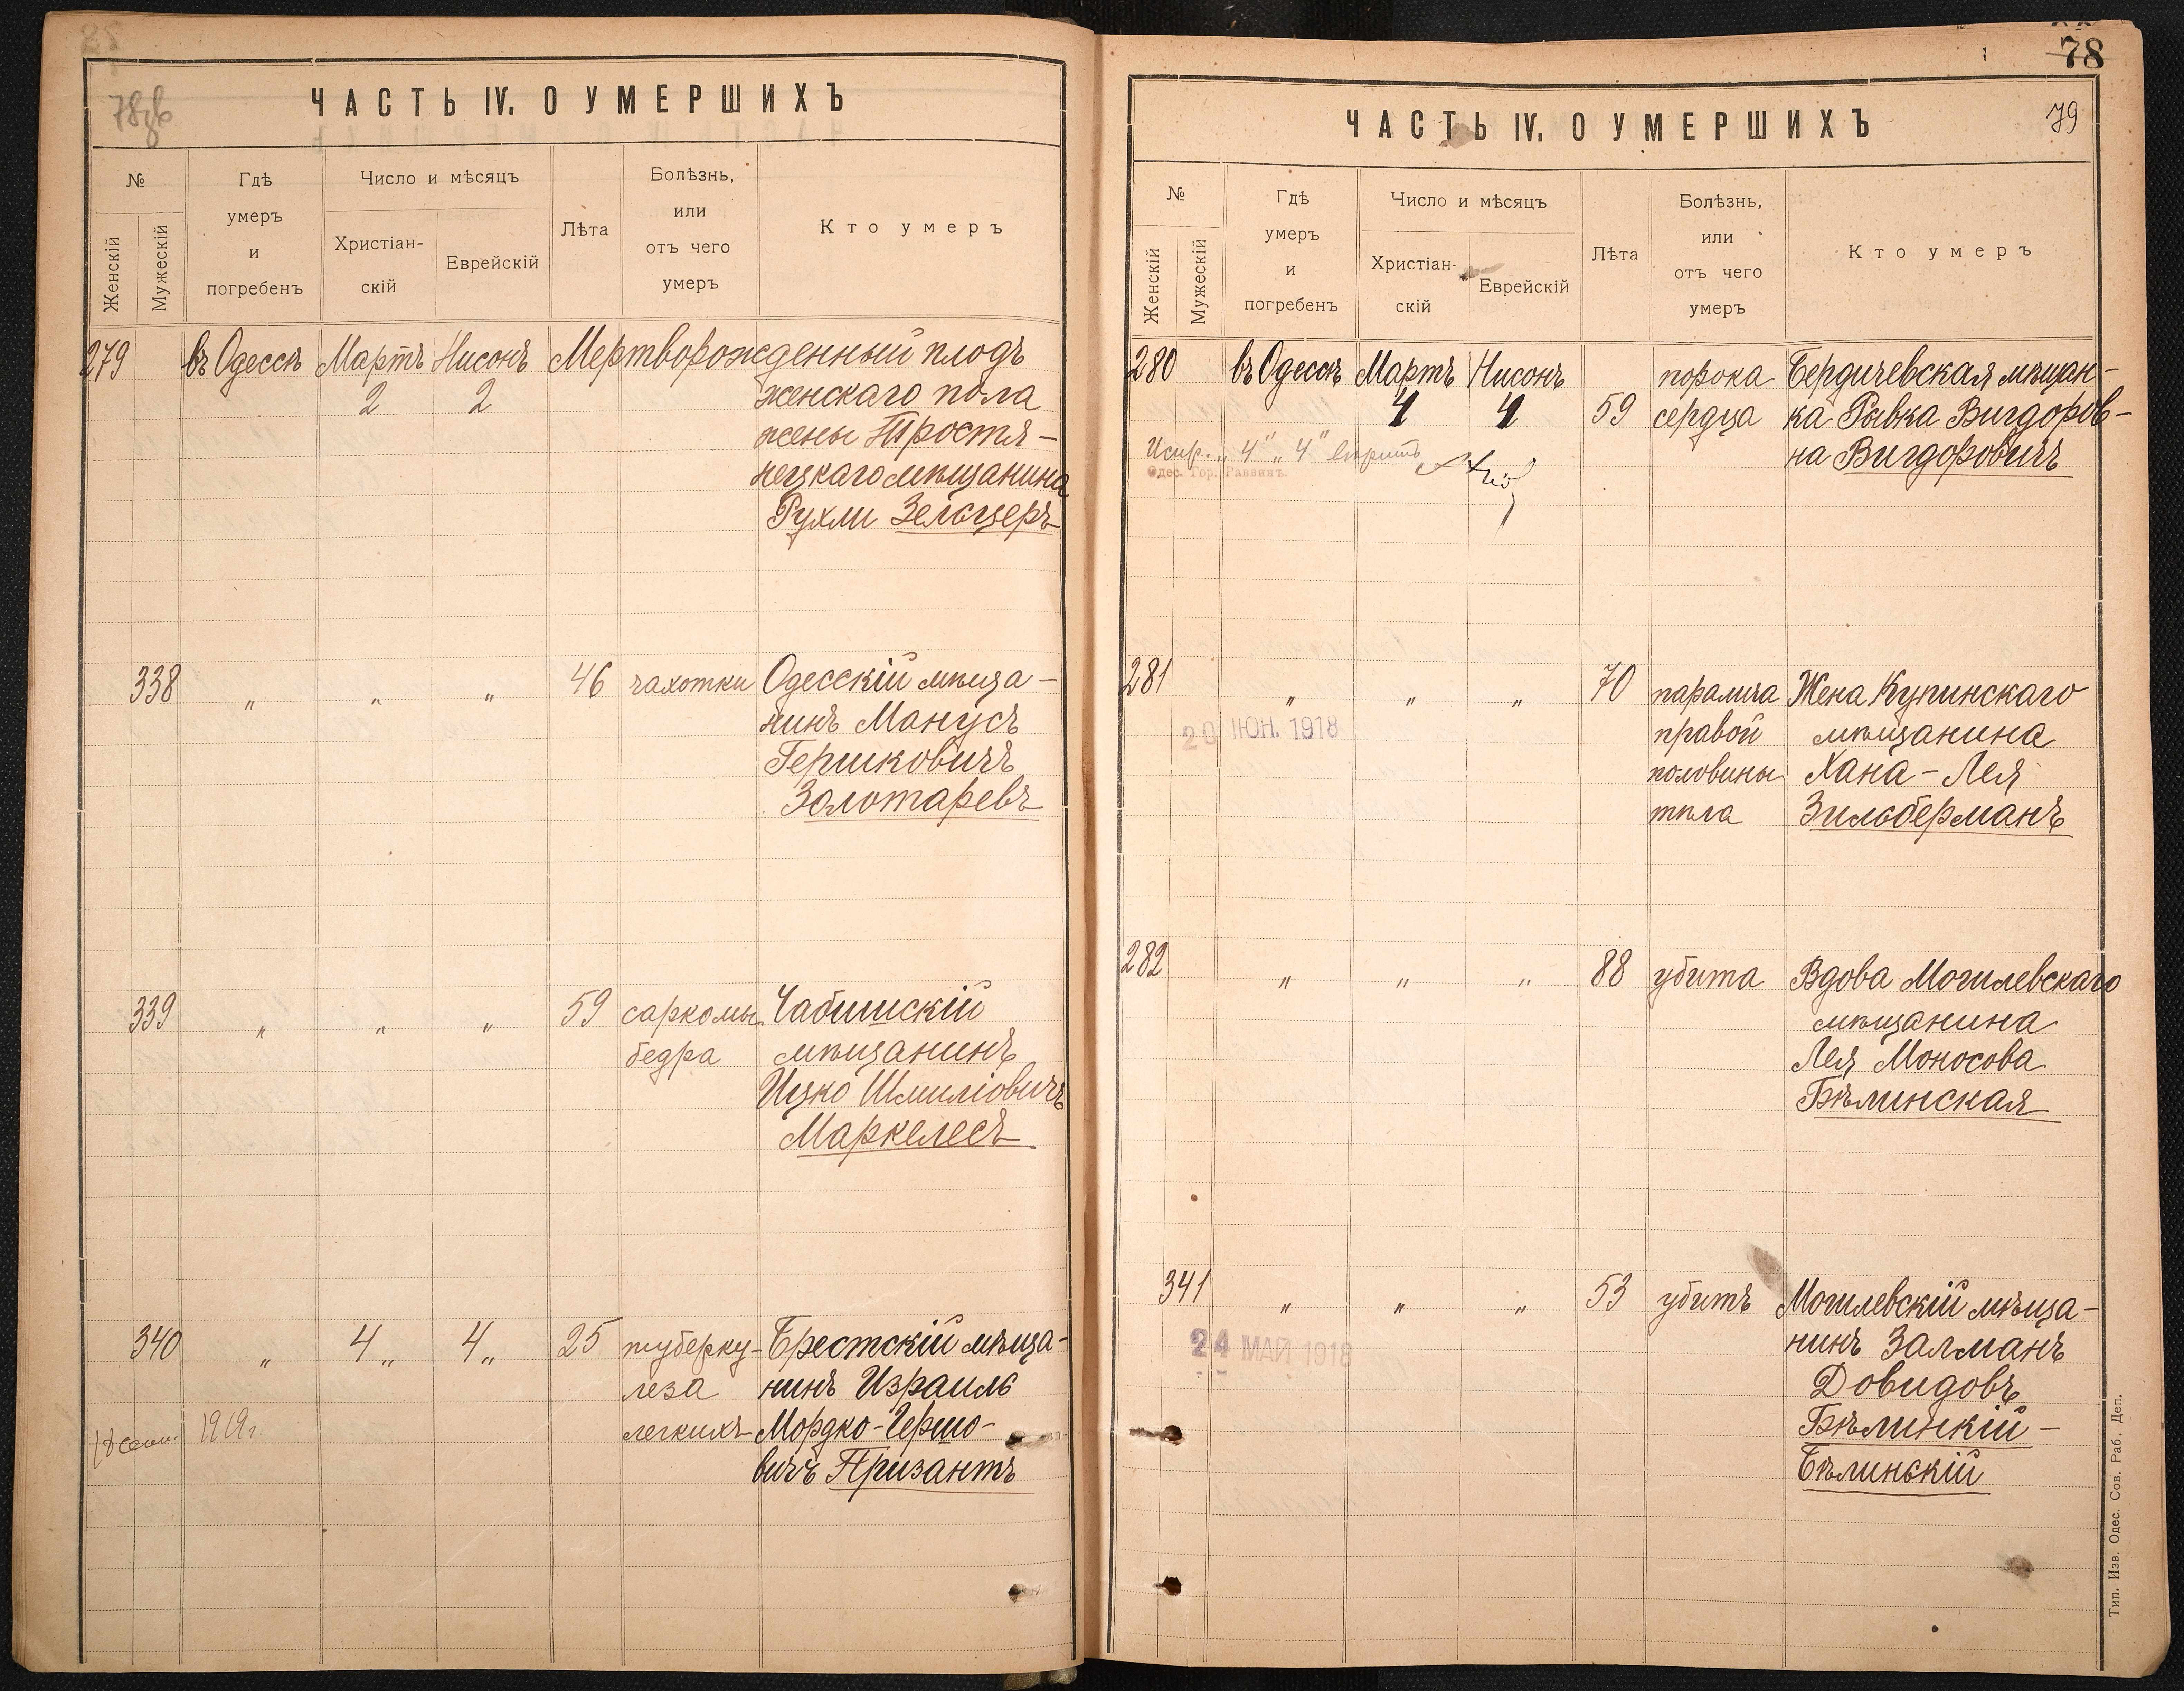 ЧАСТЬ IV. О УМЕРШИХЪ
№
Женскій
Мужескій
Гдѣ
умеръ
и
погребенъ
Число и мѣсяцъ
Христіан-
скій
Еврейскій
Лѣта
Болѣзнь,
или
отъ чего
умеръ
Кто умеръ
279 въ Одессѣ Мартъ Нисонъ Мертворожденный плодъ
2 2 женскаго пола
жены Тростя-
нецкаго мѣщанина
Рухли Зельцеръ
338 „ „ „ 46 чахотки Одесскій мѣща-
нинъ Манусъ
Гершковичъ
Золотаревъ
339 „ „ „ 59 саркомы Чабишскій
бедра мѣщанинъ
Ицко Шмиліовичъ
Маркелесъ
340 „ 4„ 4„ 25 туберку- Брестскій мѣща-
леза нинъ Израиль
1919г. легкихъ Мордко-Гершо-
вичъ Призантъ
78
79
ЧАСТЬ IV. О УМЕРШИХЪ
№
Женскій
Мужескій
Гдѣ
умеръ
и
погребенъ
Число и мѣсяцъ
Христіан-
скій
Еврейскій
Лѣта
Болѣзнь,
или
отъ чего
умеръ
Кто умеръ
280 въ Одессѣ Мартъ Нисонъ порока Бердичевская мѣщан-
4 4 59 сердца ка Рывка Вигдоров-
на Вигдоровичъ
Испр. „4" „4" вѣрить
Одес. Гор. Раввинъ
281 „ „ „ 70 паралича Жена Купинскаго
20 ІЮН. 1918 правой мѣщанина
половины Хана-Лея
тѣла Зильберманъ
282 „ „ „ 88 убита Вдова Могилевскаго
мѣщанина
Лея Моносова
Бѣлинская
341 „ „ „ 53 убитъ Могилевскій мѣща-
24 МАЙ 1918 нинъ Залманъ
Довидовъ
Бѣлинкій-
Бѣлинскій
Тип. Изв. Одес. Сов. Раб. Деп.